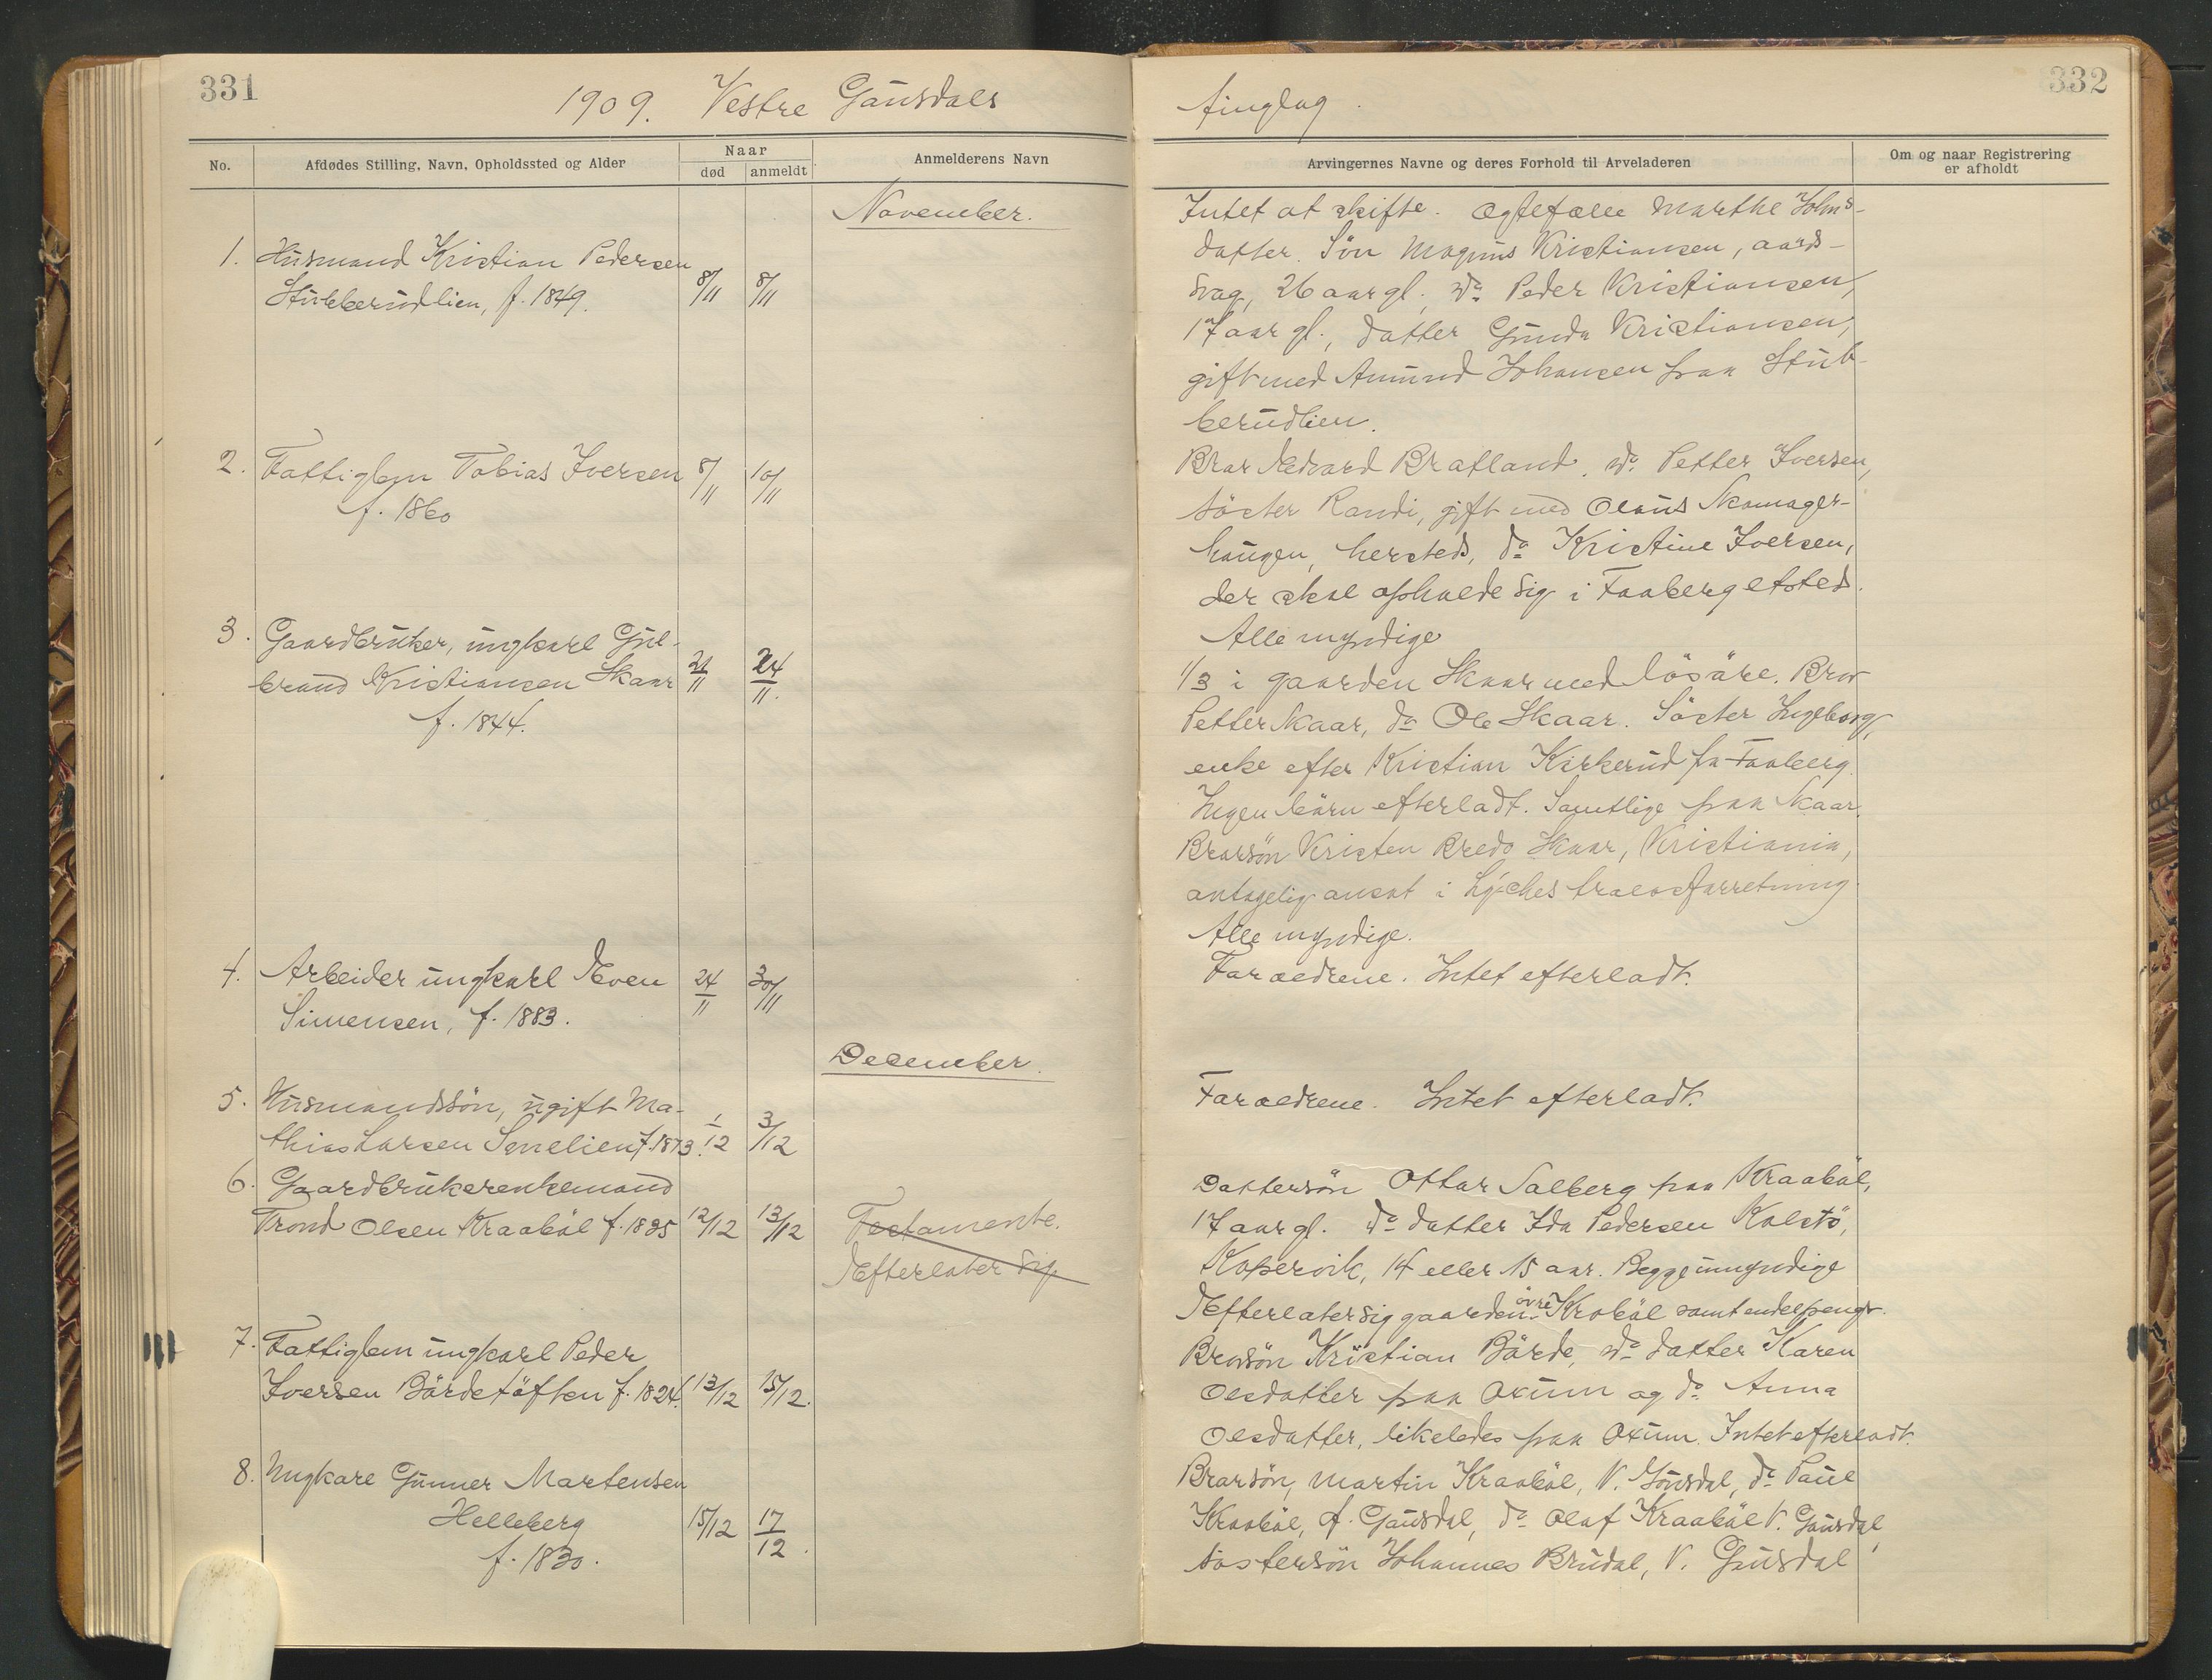 331
1909. Vestre Gausdals
No.
Afdødes Stilling, Navn, Opholdssted og Alder
Naar
død
anmeldt
Anmelderens Navn
November.
1. Husmand Kristian Pedersen
Stubberudlien, f. 1849.
8/11 8/11
2. Fattiglem Tobias Iversen
f. 1860
8/11 10/11
3. Gaardbruker, ungkarl Gul-
brand Kristiansen Skaar
f. 1844.
21/11 24/11.
4. Arbeider ungkarl Even
Simensen, f. 1883.
24/11 30/11
December.
5. Husmandssön, ugift Ma-
thias Larsen f. 1873.
1/12 3/12
6. Gaardbrukerenkemand
Trond Olsen Kraaböl f. 1835
12/12 13/12
Testamente.
Efterlater sig
7. Fattiglem ungkarl Peder
Iversen Bördetöften f. 1824.
13/12 15/12.
8. Ungkarl Gunner Martensen
Helleberg
f. 1830.
15/12 17/12.
332
tinglag.
Arvingernes Navne og deres Forhold til Arveladeren
Om og naar Registrering
er afholdt
Intet at skifte. Egtefælle Marthe Johns-
datter. Sön Magnus Kristiansen, aands-
svag, 26 aar gl. do Peder Kristiansen,
17 aar gl., datter Gunda Kristiansen,
gift med Amund Johansen paa Stub-
berudlien.
Bror Edvard Bratland, do Petter Iversen,
söster Randi, gift med Olaus Skomager-
haugen, hersteds, do Kristine Iversen,
der skal opholde sig i Faaberg etsteds.
Alle myndige
1/3 i gaarden Skaar med lösöre. Bror
Petter Skaar, do Ole Skaar. Söster Ingeborg,
enke efter Kristian Kirkerud fra Faaberg.
Ingen börn efterladt. Samtlige paa Skaar.
Brorsön Kristen Bredo Skaar, Kristiania,
antagelig ansat i Lyches trælastforretning.
Alle myndige.
Forældrene. Intet efterladt.
Forældrene. Intet efterladt.
Dattersön Ottar Salberg paa Kraaböl,
17 aar gl. do datter Ida Pedersen Kolstö,
Kopervik, 14 eller 15 aar. Begge umyndige
Efterlater sig gaarden övre Kraböl samt endel penger.
Brorsön Kristian Börde, do datter Karen
Olsdatter paa Oxum og do Anna
Olsdatter, likeledes paa Oxum. Intet efterladt.
Brorsön, Martin Kraaböl, V. Gausdal, do Paul
Kraaböl, Ø. Gausdal, do Olaf Kraaböl V. Gausdal,
söstersön Johannes Brudal, V. Gausdal